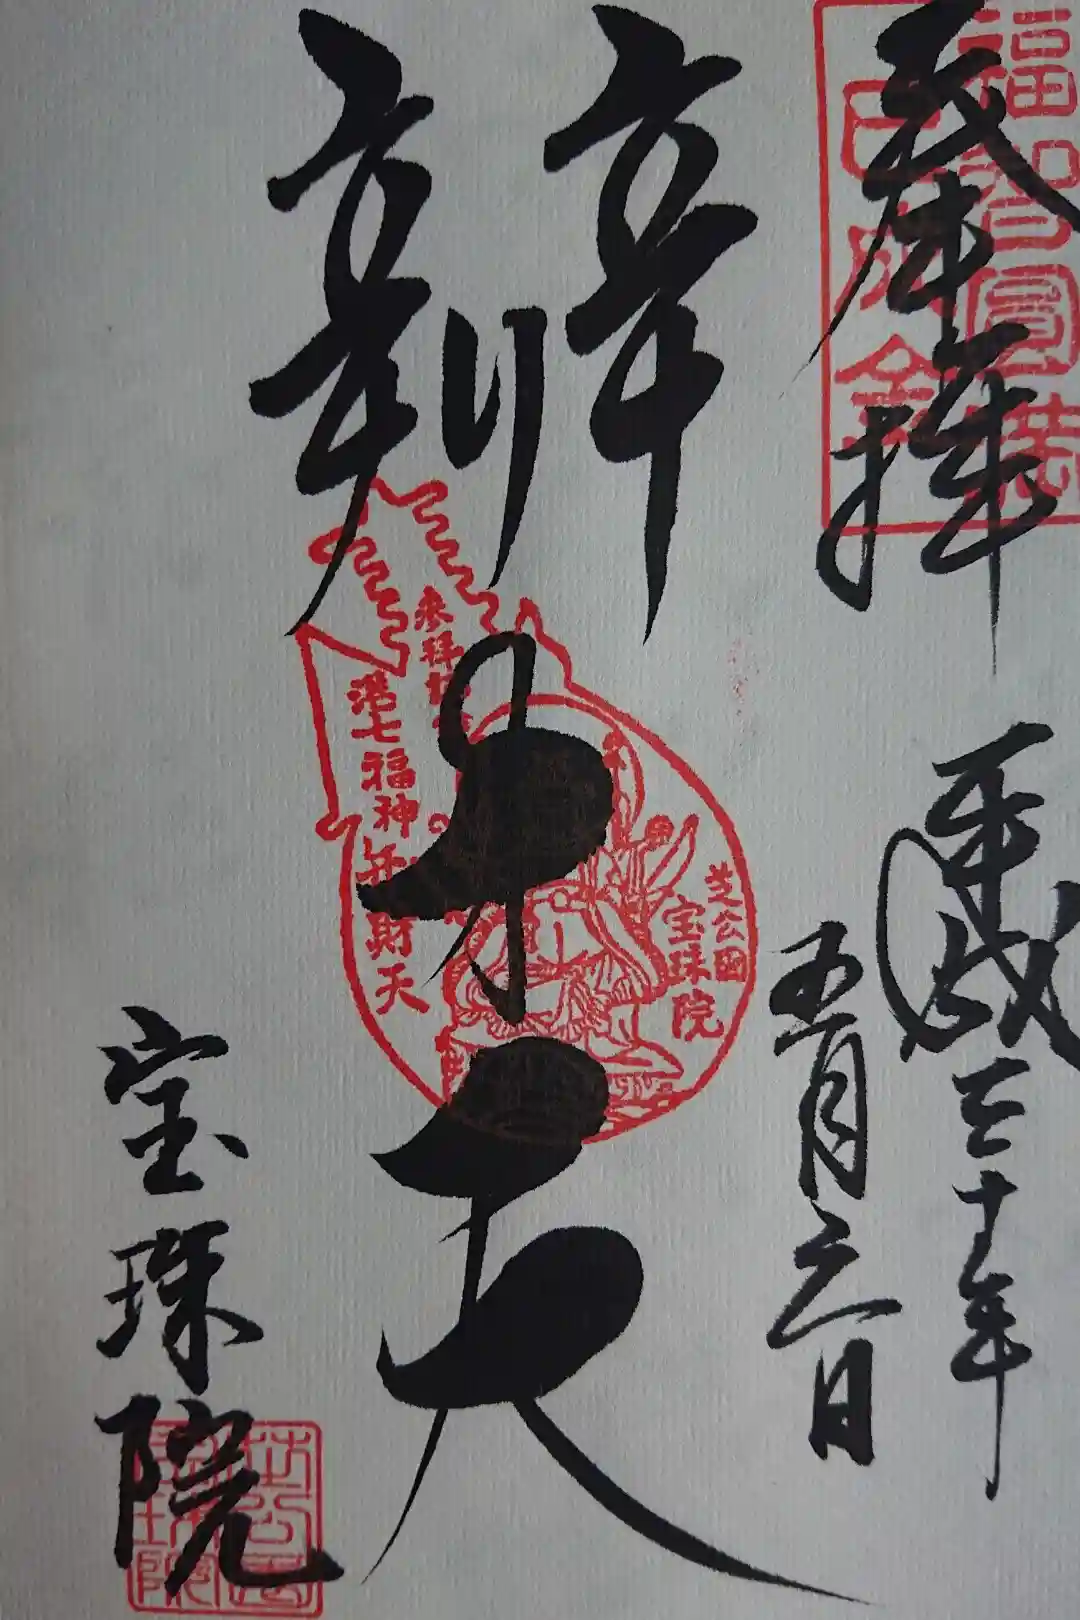 奉拝
平成三十年
五月六日
辨才天
宝珠院
参拝
港七福神弁財天
芝公園
宝珠院
福智圓